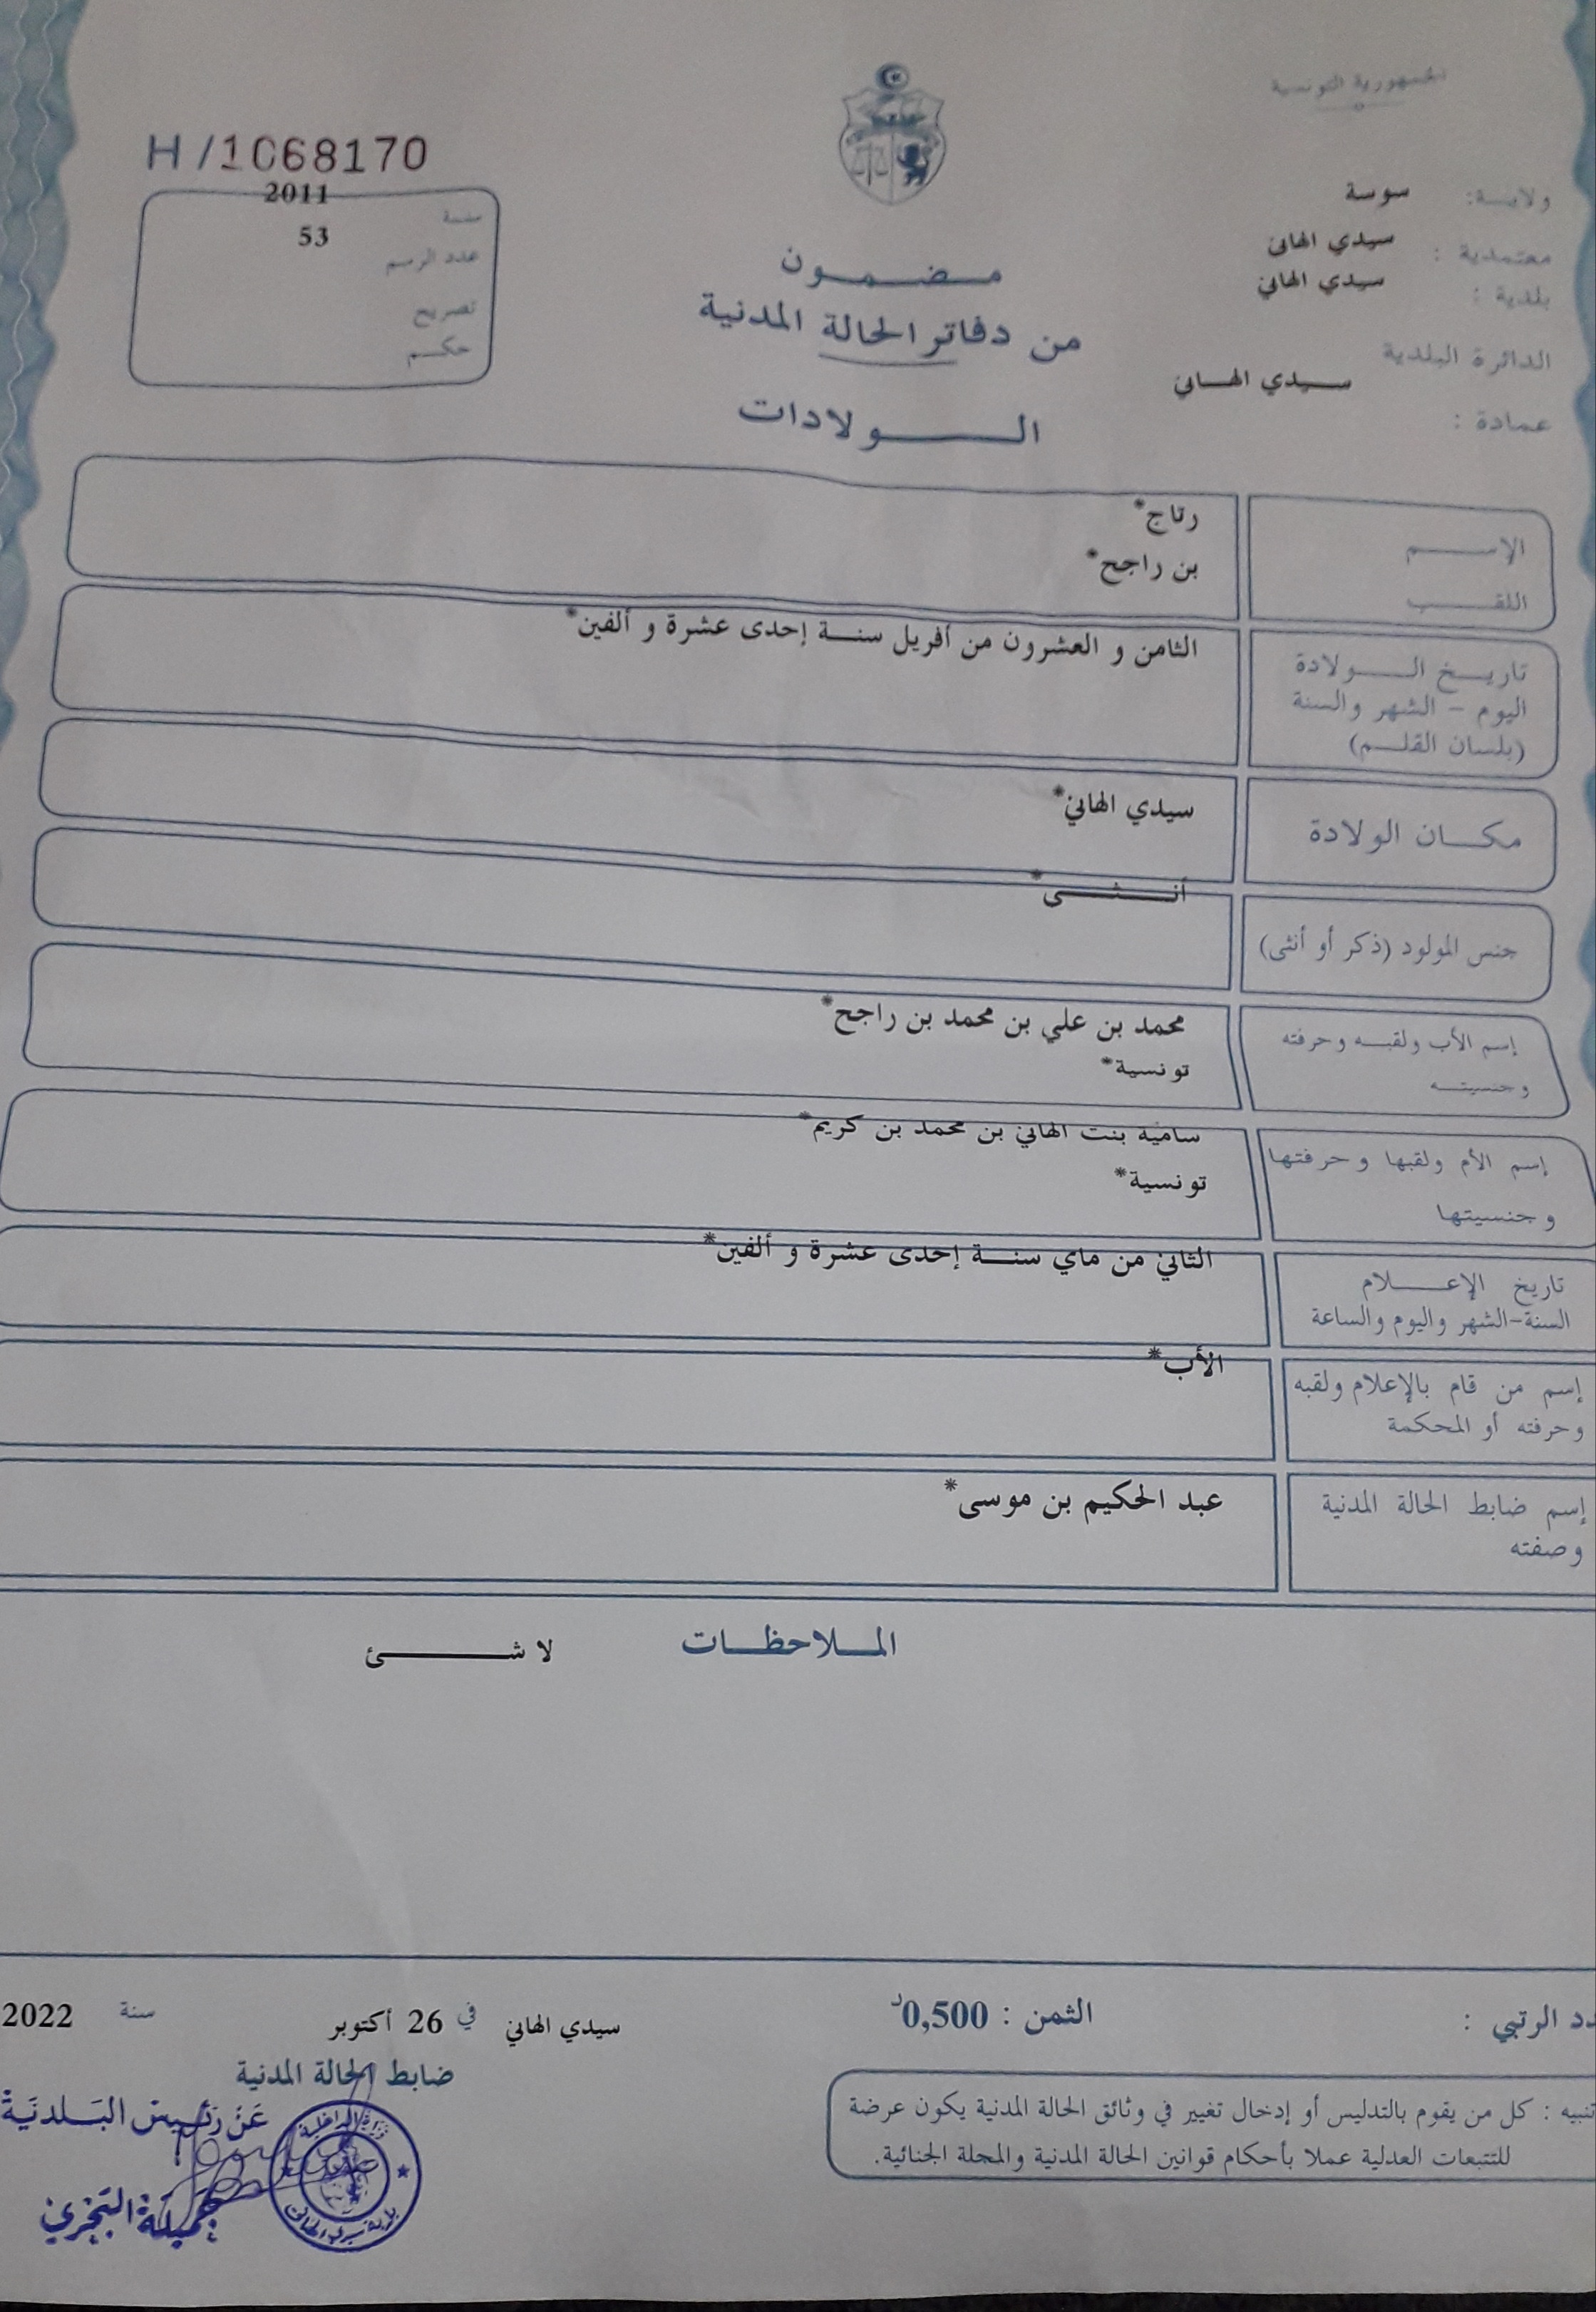 الجمهورية التونسية
ولايـــة: سوسة
معتمدية : سيدي الهاني
بلدية : سيدي الهاني
الدائرة البلدية
سـيدي الهـاني
عمادة :
H/1068170
سنـة 2011
عدد الرسم 53
تصريح
حكـم
مـضـمـون
من دفاتر الحالة المدنية
الـــولادات
الإســـم رتاج*
اللقـــب بن راجح*
تاريـخ الـــولادة الثامن و العشرون من أفريل سنـة إحدى عشرة و ألفين*
اليوم - الشهر والسنة
(بلسان القلـم)
مكـان الولادة سيدي الهاني*
جنس المولود (ذكر أو أنثى) أنـــثـــى*
إسم الأب ولقبـه وحرفته محمد بن علي بن محمد بن راجح*
وجنسيتـه تونسية*
إسم الأم ولقبها وحرفتها سامية بنت الهاني بن محمد بن كريم*
وجنسيتها تونسية*
تاريخ الإعـــلام الثاني من ماي سنـة إحدى عشرة و ألفين*
السنة-الشهر واليوم والساعة
إسم من قام بالإعلام ولقبه الأب*
وحرفته أو المحكمة
إسم ضابط الحالة المدنية عبد الحكيم بن موسى*
وصفته
المـلاحظـات لا شـــئ
دد الرتبي :
الثمن : 0,500د
سيدي الهاني في 26 أكتوبر سنة 2022
ضابط الحالة المدنية
عَنْ رَئيسِ البَـلديَةْ
وزارة الداخلية
بلدية سيدي الهاني
تنبيه : كل من يقوم بالتدليس أو إدخال تغيير في وثائق الحالة المدنية يكون عرضة
للتتبعات العدلية عملا بأحكام قوانين الحالة المدنية والمجلة الجنائية.